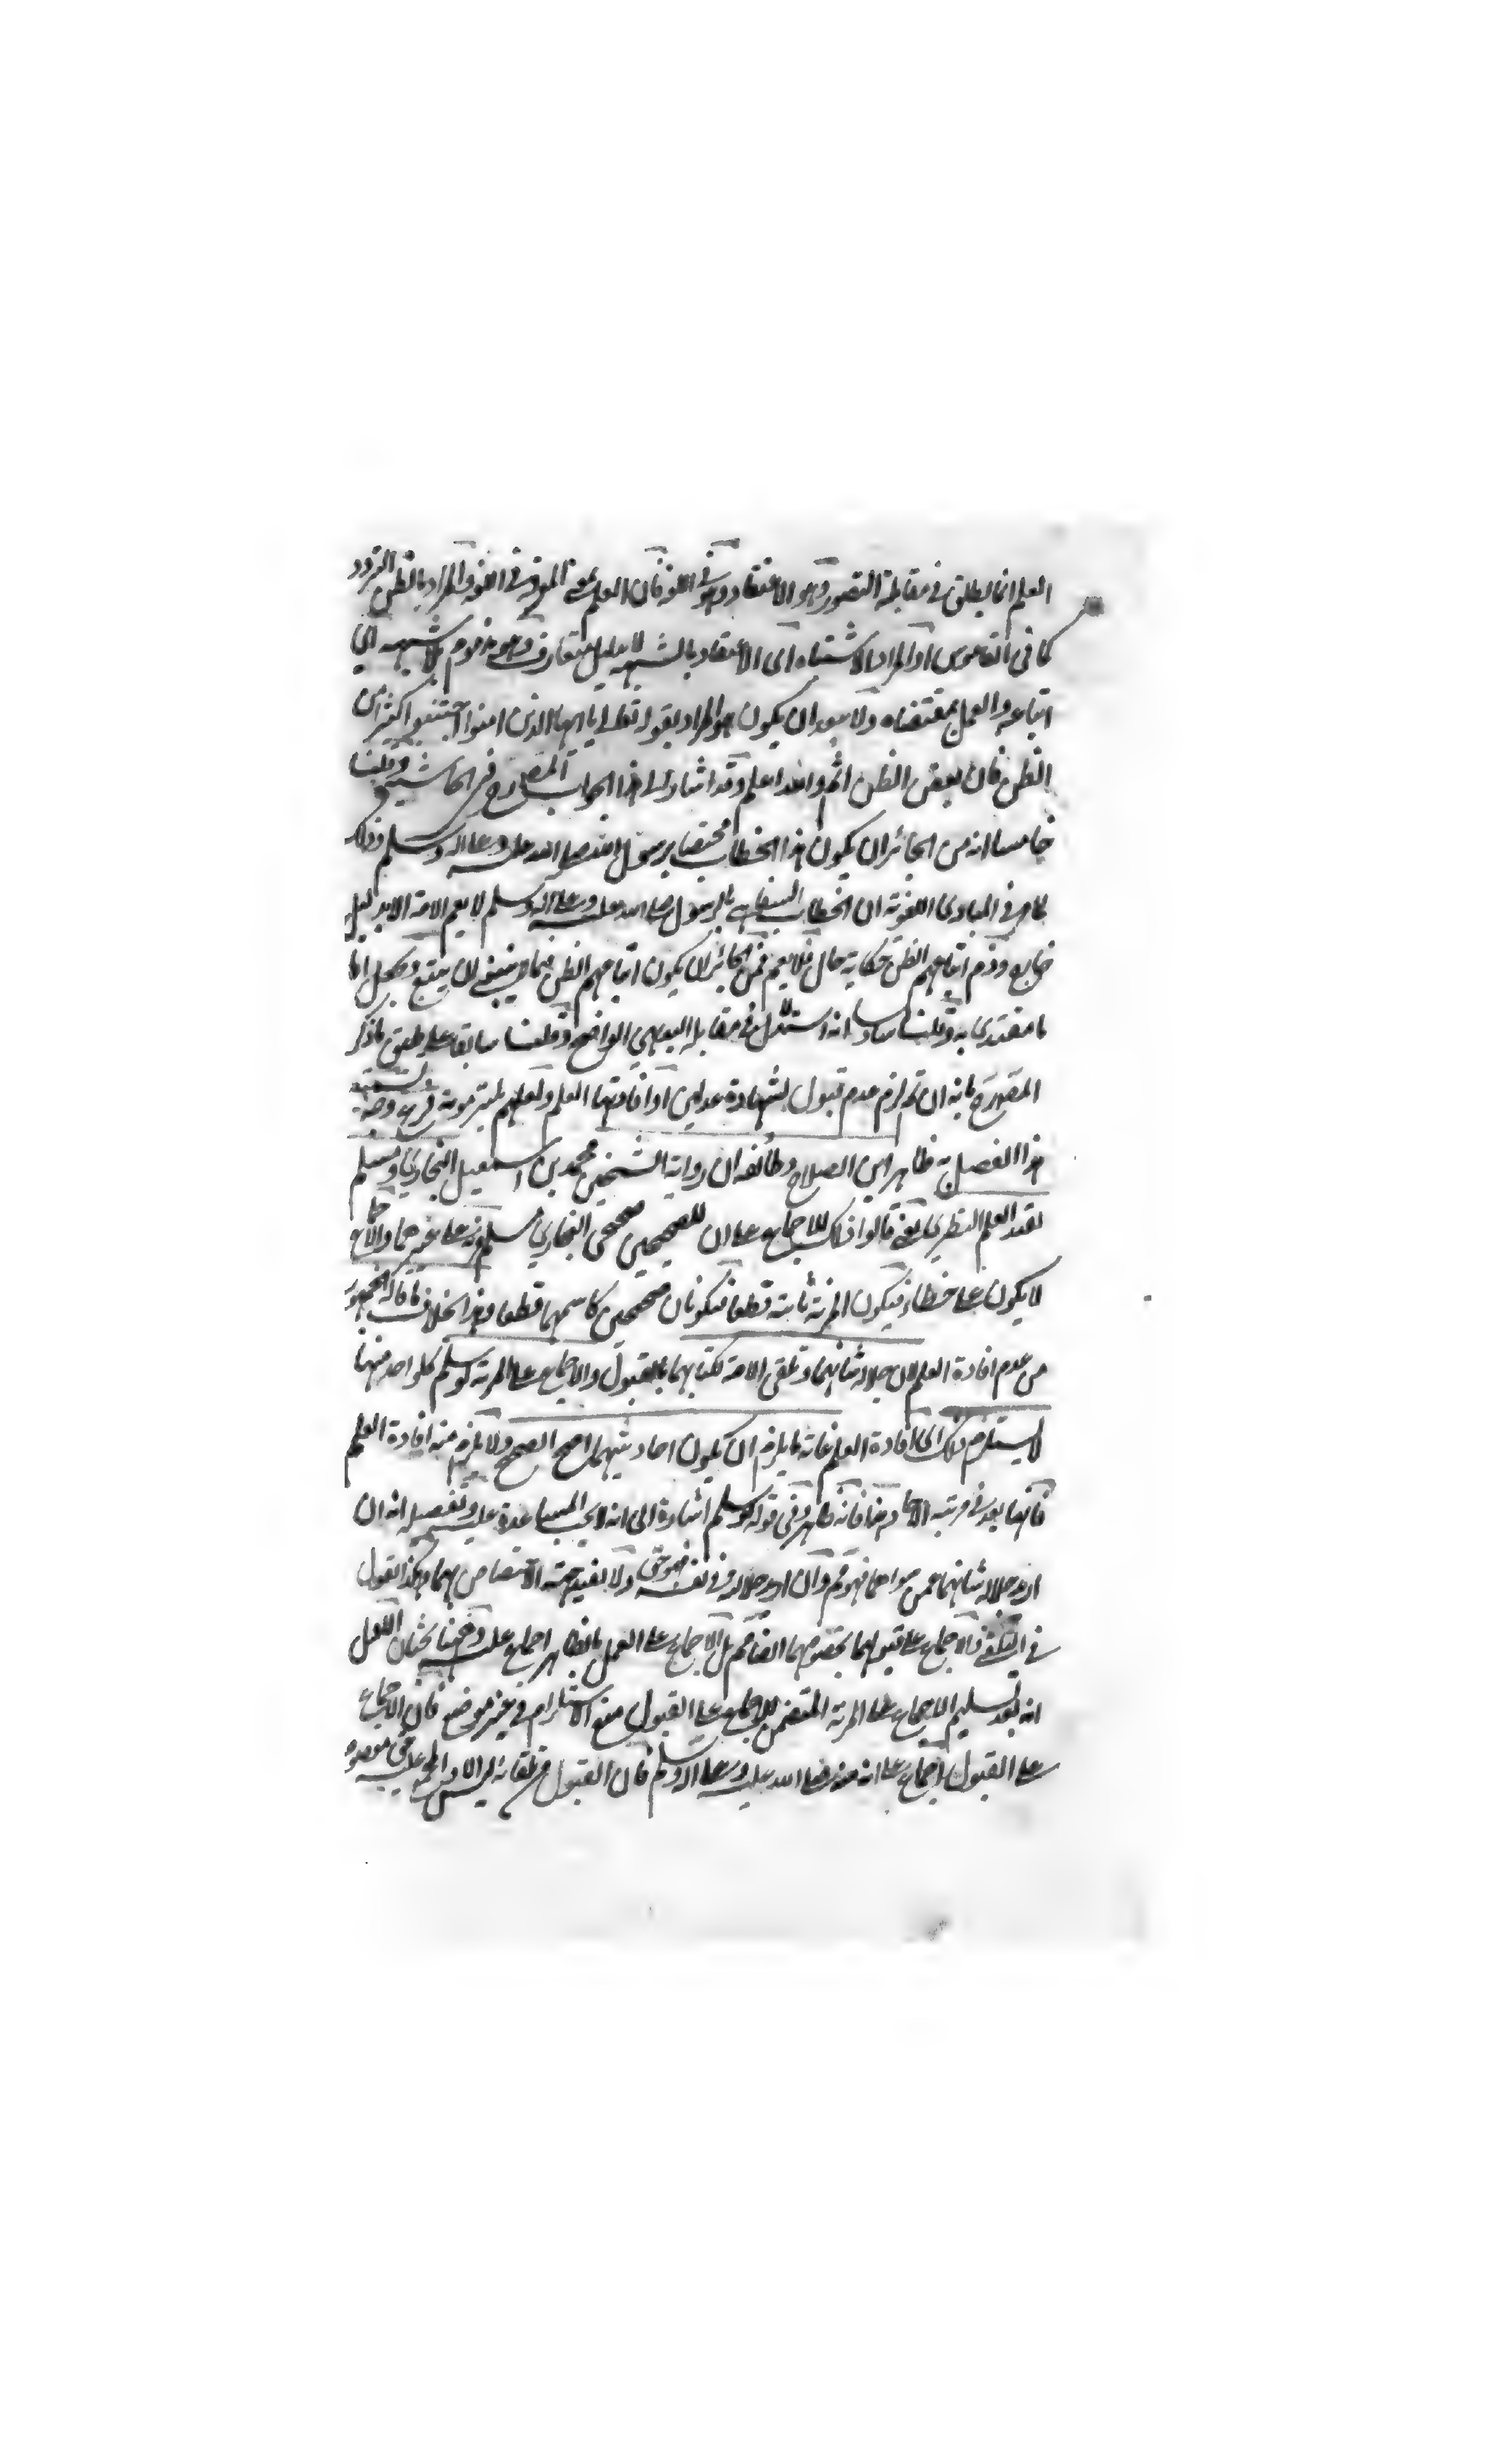 العلم انما يطلق في مقابلة التصور وهو الاعتقاد وهو في اللغو فان العلم بمعنى المعرفة في اللغة والمراد بالظن التردد
كما في القاموس او المراد الاشتباه اى الاعتقاد بالشبهة لا بدليل متعارف وهو مذموم بلا شبهه اى
اتباعه والعمل بمقتضاه ولا يبعد ان يكون هو المراد بقوله تعالى يا ايها الذين امنوا اجتنبوا كثيرا من
الظن فان بعض الظن اثم والله اعلم وقد اشار الى هذا الجواب المصنف رح في الحاشية وقلنا
خامسا انه من الجائز ان يكون هذا الخطاب مختصا برسول الله صلى الله عليه وعلى اله وسلم وذلك
كما مر في المبادى اللغوية ان الخطاب الشفاهي بالرسول صلى الله عليه وعلى آله وسلم لا يعم الامة الا بدليل
خارج وذم اتباعهم الظن حكاية حال فلا يعم فمن الجائز ان يكون اتباعهم الظن فيما لا ينبغي ان يتبع ويجعل اماما
مقتدى به وقلنا سادسا انه استدلال في مقابله البديهي الواضح وقلنا سابعا على طبق ما ذكر
المصنف رح بانه ان تم لزم عدم قبول شهادة عدلين او افادتها العلم ولعلهم يلتزمونه فرع وصية
هذا الفصل به ظاهر ابن الصلاح وطائفة ان رواية الشيخين محمد بن اسمعيل البخاري ومسلم
تفيد العلم النظري يعني قالوا ذلك للاجماع على ان للصحيحين صحيحي البخاري ومسلم مزية على غيرهما والاجماع
لا يكون على خطاء فيكون المزية ثابتة قطعا فيكونان صحيحين كاسمهما قطعا وهذا خلاف ما قاله الجمهور
من عدم افادة العلم لان جلالة شانهما وتلقى الامة لكتابهما بالقبول والاجماع على المزية لو سلم كل واحد منهما
لا يستلزم ذلك اى افادة العلم فانه ما يلزم ان يكون احاديثهما اصح الصحيح ولا يلزم منه افادة العلم
فانها بعد في مرتبة الآحاد فانه ظاهر وفي قوله لو سلم اشارة الى انه لا يجب المساعدة عليه وتفصيله انه ان
اريد جلالة شانهما عمن سواهما فهو مم وان اريد جلالته في نفسه فهو حق ولا يفيد جهة الاختصاص بهما وهكذا القول
في التلقي فالاجماع على قبولهما بخصوصهما ايضا مم بل الاجماع على العمل بالظاهر اجماع عليه وههنا بحثان الاول
انه بعد تسليم الاجماع على المزية المتضمن للاجماع على القبول منع الاستلزام في غير موضع فان الاجماع
على القبول اجماع على انه منه صلى الله عليه وعلى اله وسلم فان القبول